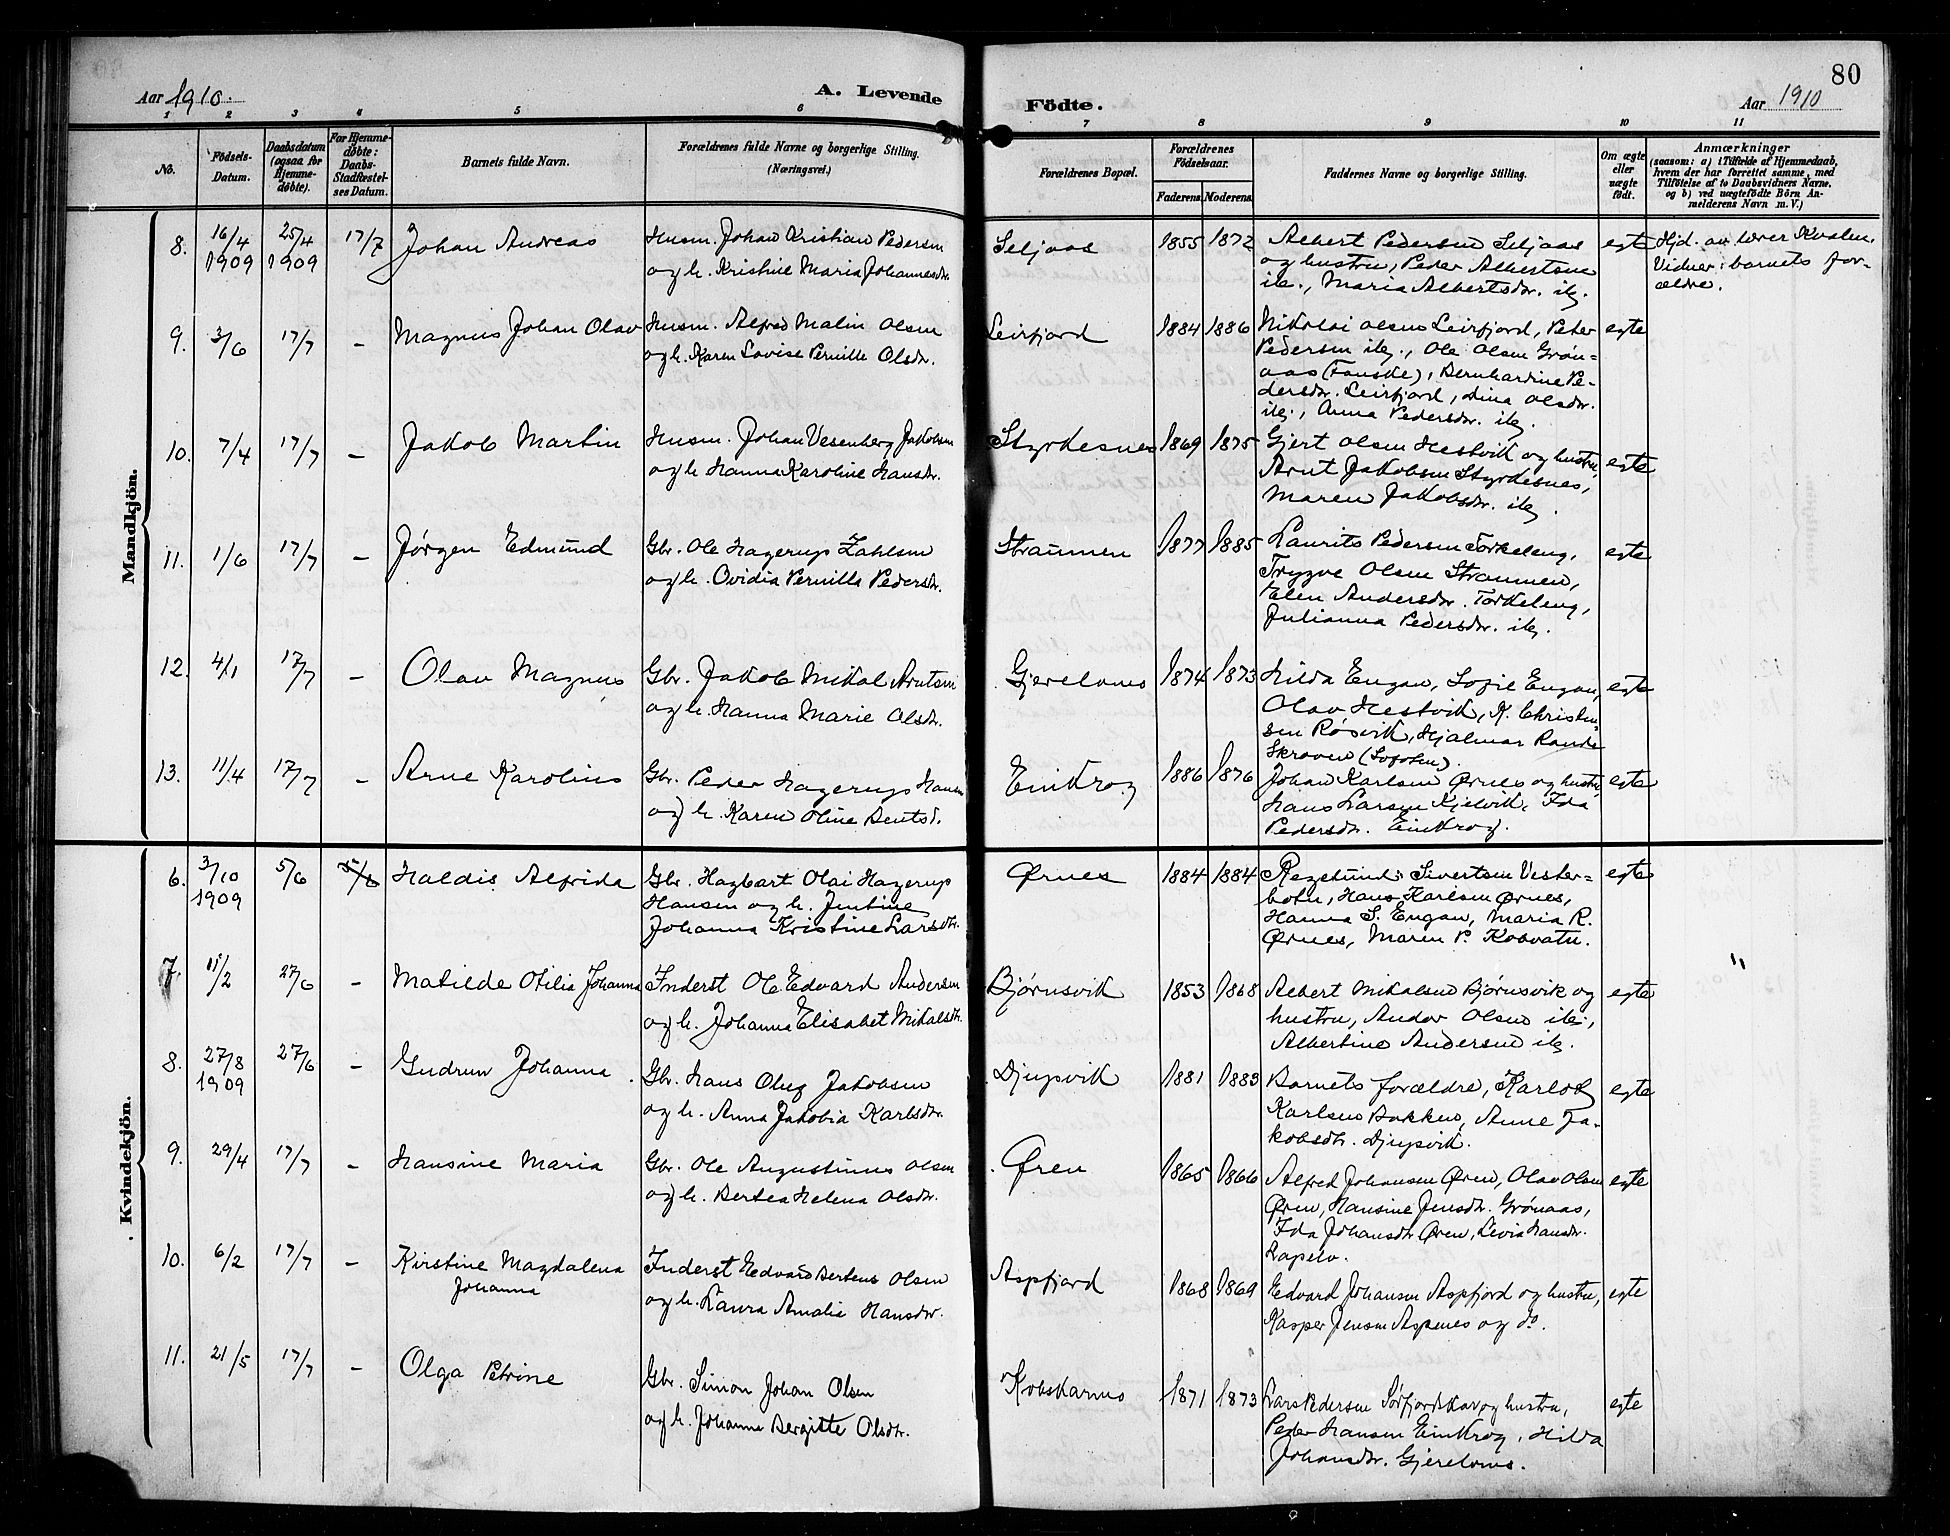 80
Aar 1910.
A. Levende
Födte.
Aar 1910
1 2 3 4 5 6 7 8 9 10 11
No.
Födsels-
Datum.
Daabsdatum
(ogsaa for
Hjemme-
døbte).
For Hjemme-
døbte:
Daabs-
Stadfæstel-
ses Datum.
Barnets fulde Navn.
Forældrenes fulde Navne og borgerlige Stilling.
(Næringsvei.)
Forældrenes Bopæl.
Forældrenes
Födselsaar.
Faderens. Moderens.
Faddernes Navne og borgerlige Stilling.
Om ægte
eller
uægte
født.
Anmærkninger
(saasom: a) i Tilfælde af Hjemmedaab,
hvem der har forrettet samme, med
Tilføielse af to Daabsvidners Navne,
og b) ved uægtefödte Börn An-
melderens Navn m. V.)
Mandkjön.
8. 16/4 1909 25/4 1909 17/7 Johan Andreas
Husm. Johan Kristian Pedersen
og h. Kristine Maria Johannesdr.
Seljaas 1855 1872
Albert Pedersen Seljaas
og hustru, Peder Albertsen
ib., Maria Albertsdr. ib.
egte
Hjd. av lærer Kvalen.
Vidner: barnets for-
ældre.
9. 3/6 17/7 - Magnus Johan Olav
Husm. Alfred Malin Olsen
og h. Karen Lovise Pernille Olsdr.
Leirfjord 1884 1886
Nikolai Olsen Leirfjord, Peter
Pedersen ib., Ole Olsen Grøn-
aas (Fauske), Bernhardine Pe-
dersdr. Leirfjord, Dina Olsdr.
ib., Anna Pedersdr. ib.
egte
10. 7/4 17/7 - Jakob Martin
Husm. Johan Vesenberg Jakobsen
og h. Hanna Karoline Hansdr.
Styrkesnes 1869 1875
Gjert Olsen Hestvik og hustru,
Arnt Jakobsen Styrkesnes,
Maren Jakobsdr. ib.
egte
11. 1/6 17/7 - Jørgen Edmund
Gbr. Ole Hagerup Zahlsen
og h. Ovidia Pernilla Pedersdr.
Straumen 1877 1885
Laurits Pedersen Torkeleng,
Trygve Olsen Straumen,
Elen Andersdr. Torkeleng,
Julianna Pedersdr. ib.
egte
12. 4/1 17/7 - Olav Magnus
Gbr. Jakob Mikal Arntsen
og h. Hanna Marie Olsdr.
Gjerelvnes 1874 1873
Hilda Engan, Sofie Engan,
Olav Hestvik, K. Christen
sen Røsvik, Hjalmar
Skraaven (Lofoten).
egte
13. 11/4 17/7 - Arne Karolius
Gbr. Peder Hagerup Hansen
og h. Karen Oline Bentsd.
Einkrog 1886 1876
Johan Karlsen Ørnes og hustru,
Hans Larsen Kjelvik, Ida
Pedersdr. Einkrog.
egte
Kvindekjön.
6. 3/10 1909 5/6 5/6 Haldis Alfrida
Gbr. Hagbart Olai Hagerup
Hansen og h. Jentine
Johanna Kristine Larsdtr.
Ørnes 1884 1884
Sivertsen Vester-
botn, Hans Karlsen Ørnes,
Hanna S. Engan, Maria R.
Ørnes, Maren P. Kobvatn.
egte
7. 11/2 27/6 - Matilde Otilia Johanna
Inderst Ole Edvard Andersen
og h. Johanna Elisabet Mikalsdtr.
Bjørnsvik 1853 1868
Albert Mikalsen Bjørnsvik og
hustru, Andor Olsen ib.,
Albertine Andersen ib.
egte
"
8. 27/8 1909 27/6 - Gudrun Johanna
Gbr. Hans Oluf Jakobsen
og h. Anna Jakobia Karlsdtr.
Djupvik 1881 1883
Barnets forældre, Karlot
Karlsen Bakken, Anne Ja-
kobsdtr. Djupvik.
egte
9. 29/4 17/7 - Hansine Maria
Gbr. Ole Augustinus Olsen
og h. Bertea Helena Olsdtr.
Øren 1865 1866
Alfred Johansen Øren, Olav Olsen
Øren, Hansine Jensdtr. Grønaas,
Ida Johansdtr. Øren, Levia Hansdr.
Lapelv.
egte
10. 6/2 17/7 - Kirstine Magdalena
Johanna
Inderst Edvard Bertens Olsen
og h. Laura Amalie Hansdtr.
Aspfjord 1868 1869
Edvard Johansen Aspfjord og hustru,
Kasper Jensen Aspenes og do.
egte
11. 21/5 17/7 - Olga Petrine
Gbr. Simon Johan Olsen
og h. Johanna Bergitte Olsdtr.
Kobskarnes 1871 1873
Lars Pedersen Sørfjordskar og hustru,
Peder Hansen Einkrog, Hilda
Johansdtr. Gjerelvnes.
egte